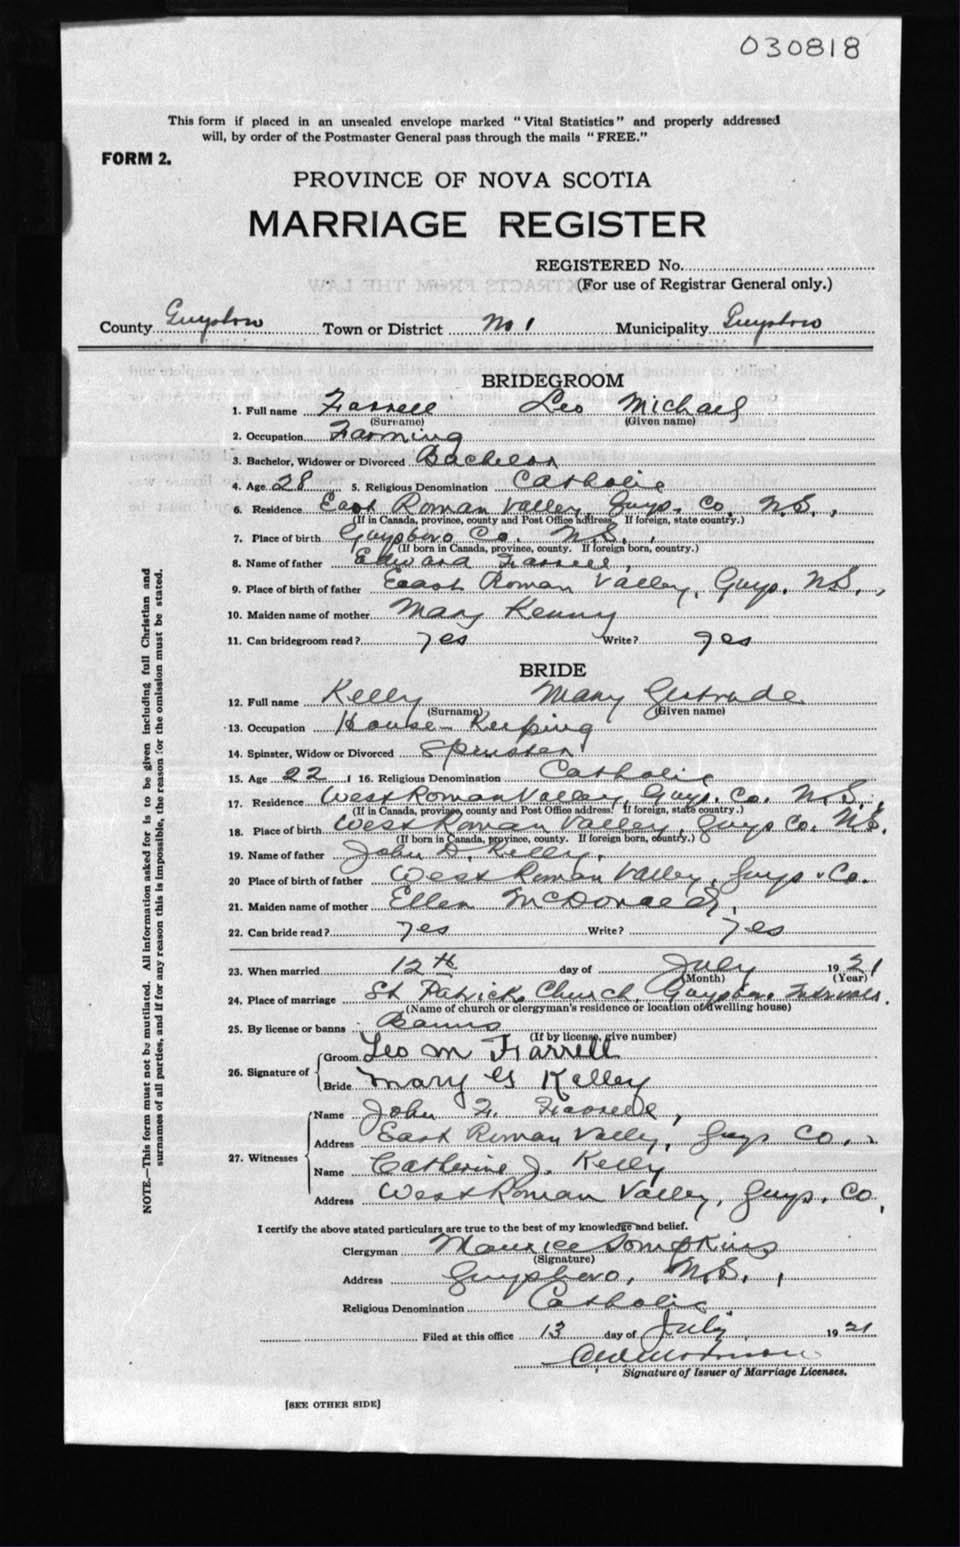 030818
This form if placed in an unsealed envelope marked "Vital Statistics" and properly addressed
will, by order of the Postmaster General pass through the mails "FREE."
FORM 2.
PROVINCE OF NOVA SCOTIA
MARRIAGE REGISTER
REGISTERED No.
(For use of Registrar General only.)
County Guysboro Town or District No 1 Municipality Guysboro
BRIDEGROOM
1. Full name Farrell Leo Michael
(Surname) (Given name)
2. Occupation Farming
3. Bachelor, Widower or Divorced Bachelor
4. Age 28 5. Religious Denomination Catholic
6. Residence East Roman Valley, Guys. Co. N.S.,
(If in Canada, province, county and Post Office address. If foreign, state country.)
7. Place of birth Guysboro Co. N.S.,
(If born in Canada, province, county. If foreign born, country.)
8. Name of father Edward Farrell,
9. Place of birth of father East Roman Valley, Guys. N.S.,
10. Maiden name of mother Mary Kenny
11. Can bridegroom read? yes Write? yes
BRIDE
12. Full name Kelly Mary Gertrude
(Surname) (Given name)
13. Occupation House-Keeping
14. Spinster, Widow or Divorced Spinster
15. Age 22 16. Religious Denomination Catholic
17. Residence West Roman Valley, Guys. Co. N.S.,
(If in Canada, province, county and Post Office address. If foreign, state country.)
18. Place of birth West Roman Valley, Guys Co. N.S.
(If born in Canada, province, county. If foreign born, country.)
19. Name of father John D. Kelly,
20 Place of birth of father West Roman Valley, Guys. Co.
21. Maiden name of mother Ellen McDonald,
22. Can bride read? yes Write? yes
23. When married 12th day of July 1921
(Month) (Year)
24. Place of marriage St Patricks Church, Guysboro Intervale.
(Name of church or clergyman's residence or location of dwelling house)
25. By license or banns Banns
(If by license, give number)
26. Signature of
Groom Leo M Farrell
Bride Mary G Kelley
27. Witnesses
Name John F. Farrell,
Address East Roman Valley, Guys Co.,
Name Catherine J. Kelly
Address West Roman Valley, Guys. Co,
I certify the above stated particulars are true to the best of my knowledge and belief.
Clergyman Maurice Tompkins
(Signature)
Address Guysboro, N.S.,
Religious Denomination Catholic
Filed at this office 13 day of July 1921
Signature of Issuer of Marriage Licenses.
[SEE OTHER SIDE]
NOTE.—This form must not be mutilated. All information asked for is to be given including full Christian and
surnames of all parties, and if for any reason this is impossible, the reason for the omission must be stated.